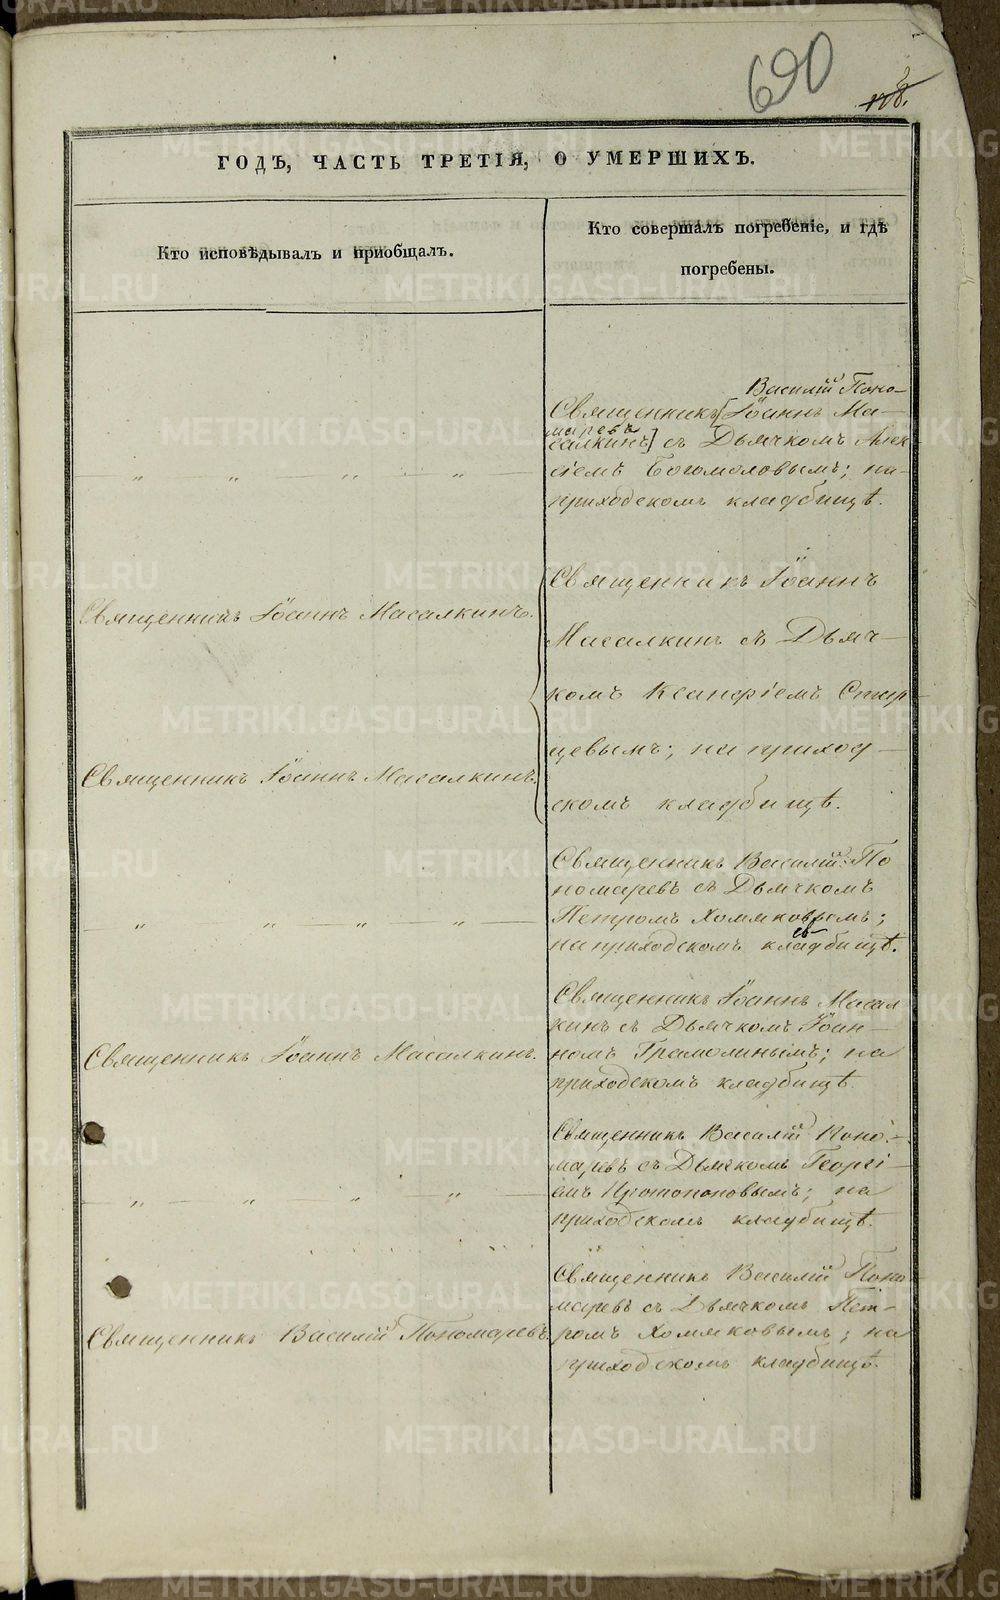 690
ГОДЪ, ЧАСТЬ ТРЕТІЯ, О УМЕРШИХЪ.
Кто исповѣдывалъ и пріобщалъ.
Кто совершалъ погребеніе, и гдѣ
погребены.
Василій Поно-
Священникъ [Іоаннъ Ма-
маревъ
салкинъ] съ Дьячкомъ Алек
сіемъ Богомоловымъ; на
приходскомъ кладбищѣ.
Священникъ Іоаннъ Масалкинъ.
Священникъ Іоаннъ Масалкинъ.
Священникъ Іоаннъ
Масалкинъ съ Дьяч-
комъ Ксанфіемъ Стар
цевымъ; на приход-
скомъ кладбищѣ.
Священникъ Василій По
номаревъ съ Дьячкомъ
Петромъ Хомяковымъ;
на приходскомъ кладбищѣ.
Священникъ Іоаннъ Масалкинъ.
Священникъ Іоаннъ Масал
кинъ съ Дьячкомъ Іоан-
номъ Грамолинымъ; на
приходскомъ кладбищѣ.
Священникъ Василій Поно-
маревъ съ Дьячкомъ Георгі-
емъ Протопоповымъ; на
приходскомъ кладбищѣ.
Священникъ Василій Пономаревъ.
Священникъ Василій Поно
маревъ съ Дьячкомъ Пет-
ромъ Хомяковымъ; на
приходскомъ кладбищѣ.
METRIKI.GASO-URAL.RU